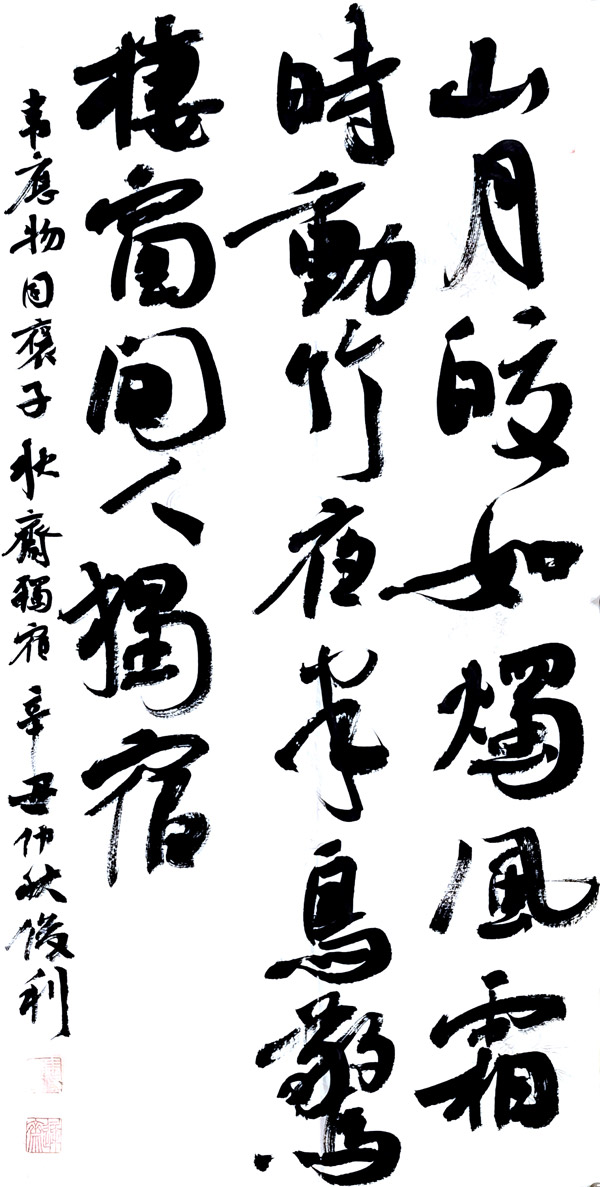 山月皎如燭風霜
時動竹夜半鳥驚
棲窗間人獨宿
韋應物同褒子秋齋獨宿 辛丑仲秋俊利